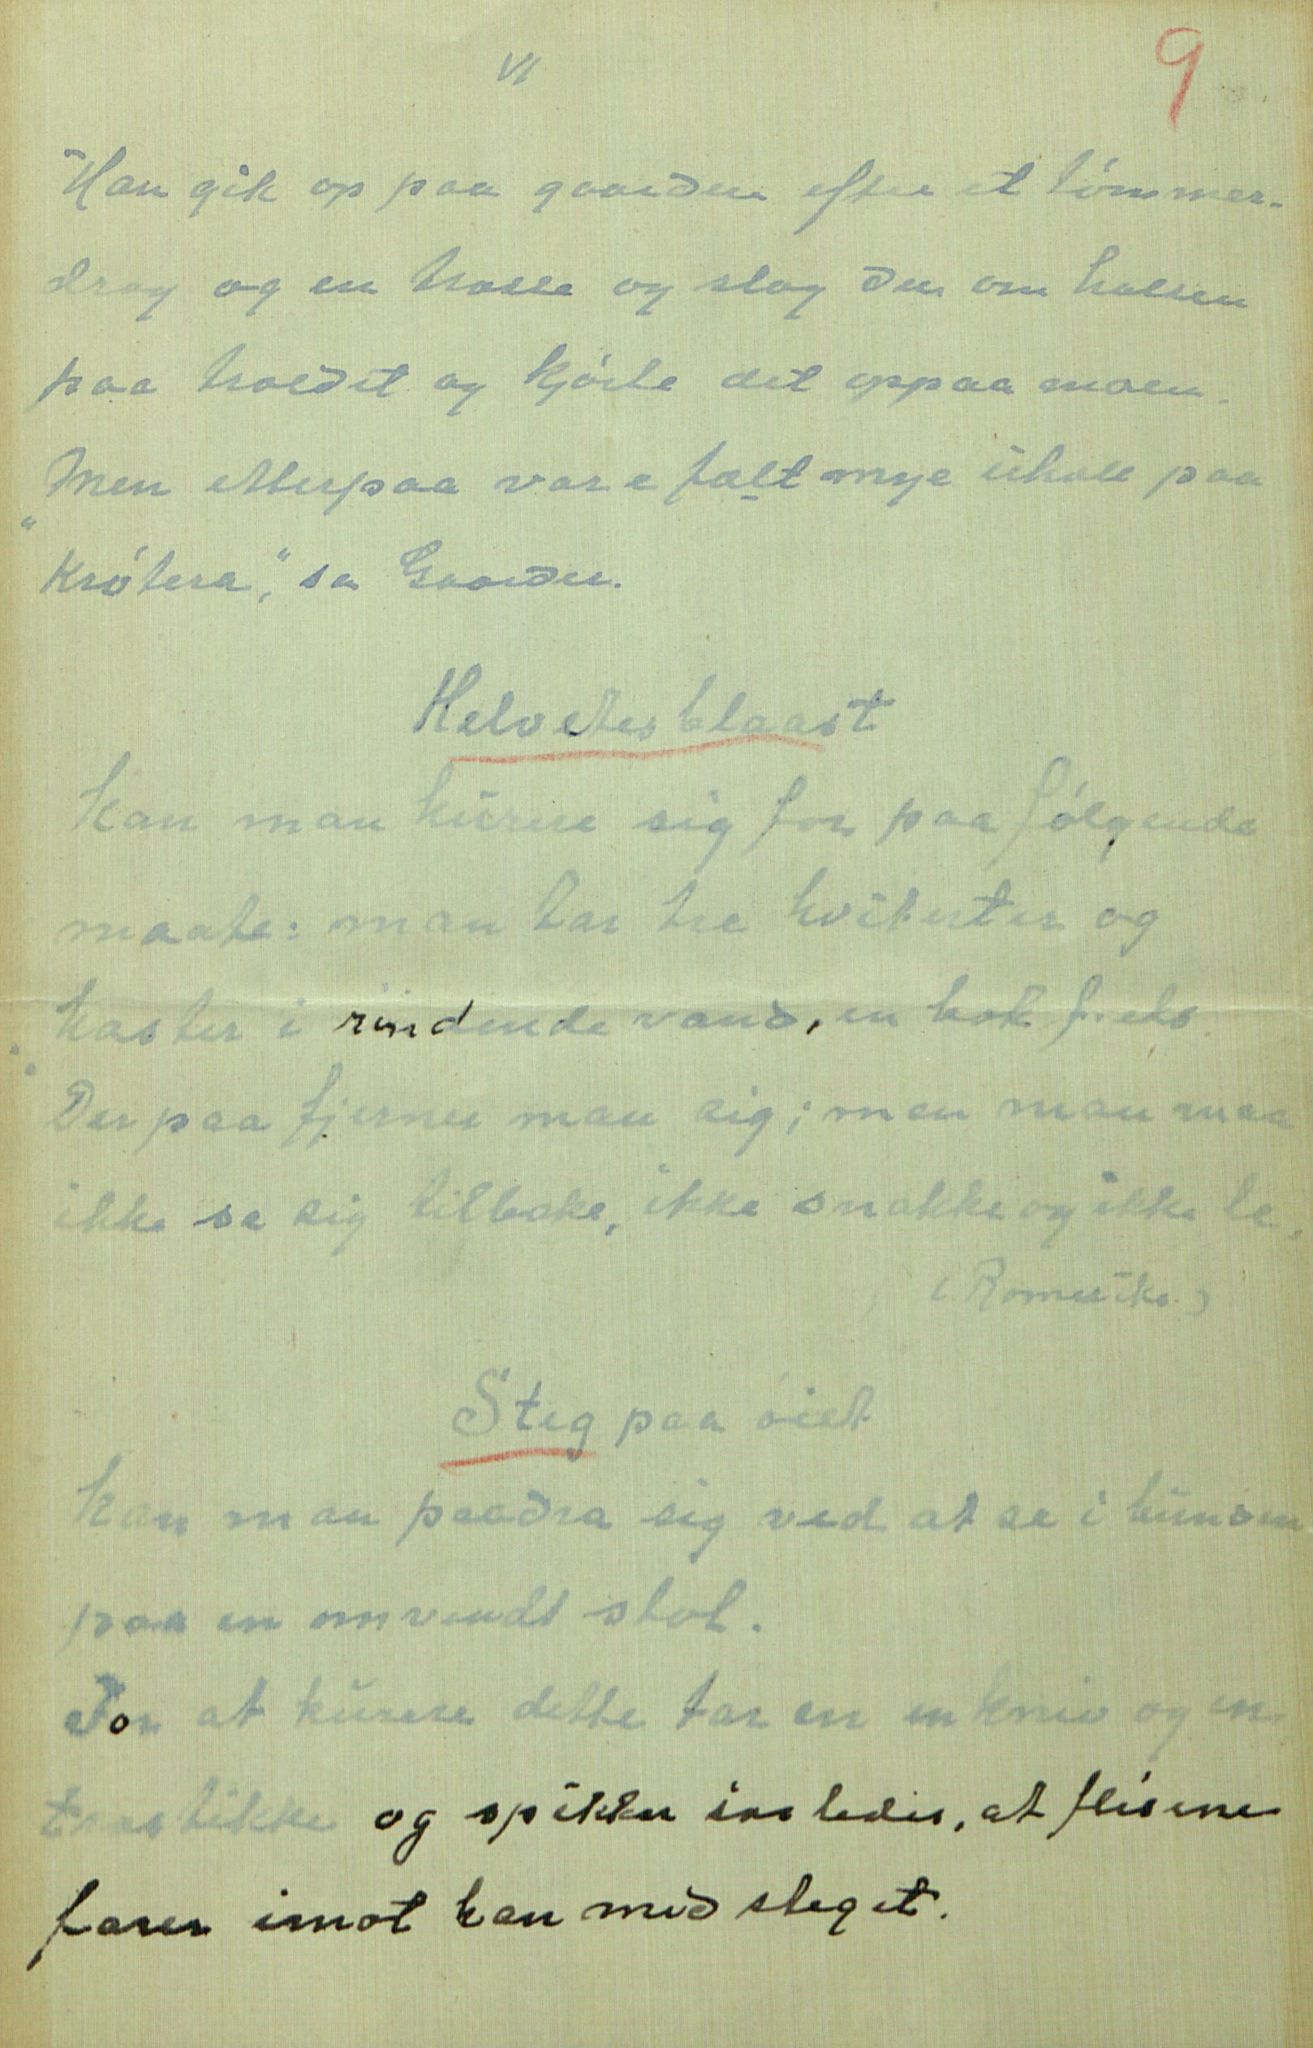 VI
9
Han gik op paa gaarden efter et tømmer-
drag og en trosse og slog den om halsen
paa troldet og kjørte det oppaa moen.
Men etterpaa var e fælt mye uhell paa
"Krøtera," sa Gaarder.
Helvetesblaast
kan man kurere sig for paa følgende
maate: man tar tre kviterter og
kaster i rindende vand, en bæk f. eks.
Derpaa fjerner man sig; men man maa
ikke se sig tilbake, ikke snakke og ikke le.
(Romerike.)
Steg paa øiet
kan man paadra sig ved at se i bunden
paa en omvendt stol.
For at kurere dette tar en en kniv og en
træstikke og spikker saaledes, at flisene
farer imot han med steget.